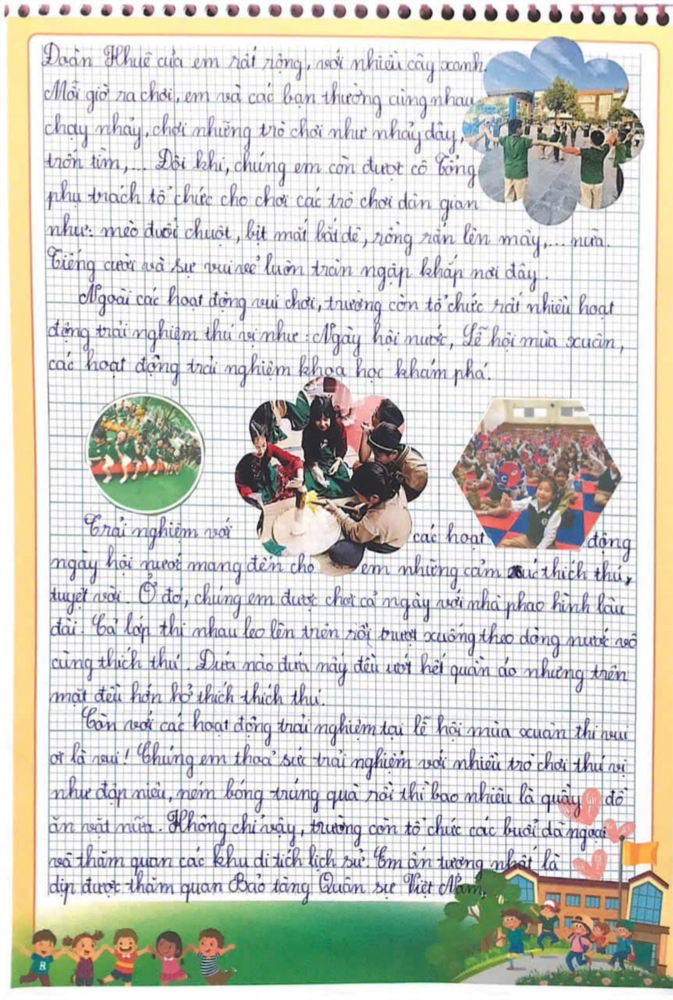 Đoàn Khuê của em rất rộng, với nhiều cây xanh.
Mỗi giờ ra chơi, em và các bạn thường cùng nhau
chạy nhảy, chơi những trò chơi như nhảy dây,
trốn tìm,... Đôi khi, chúng em còn được cô Tổng
phụ trách tổ chức cho chơi các trò chơi dân gian
như: mèo đuổi chuột, bịt mắt bắt dê, rồng rắn lên mây,... nữa.
Tiếng cười và sự vui vẻ luôn tràn ngập khắp nơi đây.
Ngoài các hoạt động vui chơi, trường còn tổ chức rất nhiều hoạt
động trải nghiệm thú vị như: Ngày hội nước, Lễ hội mùa xuân,
các hoạt động trải nghiệm khoa học khám phá.
Trải nghiệm với các hoạt động
ngày hội nước mang đến cho em những cảm thích thú,
tuyệt vời. Ở đó, chúng em được chơi cả ngày với nhà phao hình lâu
đài. Cả lớp thi nhau leo lên trên rồi trượt xuống theo dòng nước vô
cùng thích thú. Đứa nào đứa nấy đều ướt hết quần áo nhưng trên
mặt đều hớn hở thích thích thú.
Còn với các hoạt động trải nghiệm tại lễ hội mùa xuân thì vui
ơi là vui! Chúng em thoả sức trải nghiệm với nhiều trò chơi thú vị
như đập niêu, ném bóng trúng quà rồi thì bao nhiêu là quầy đồ
ăn vặt nữa. Không chỉ vậy, trường còn tổ chức các buổi dã ngoại
và thăm quan các khu di tích lịch sử. Em ấn tượng nhất là
dịp được thăm quan Bảo tàng Quân sự Việt Nam,